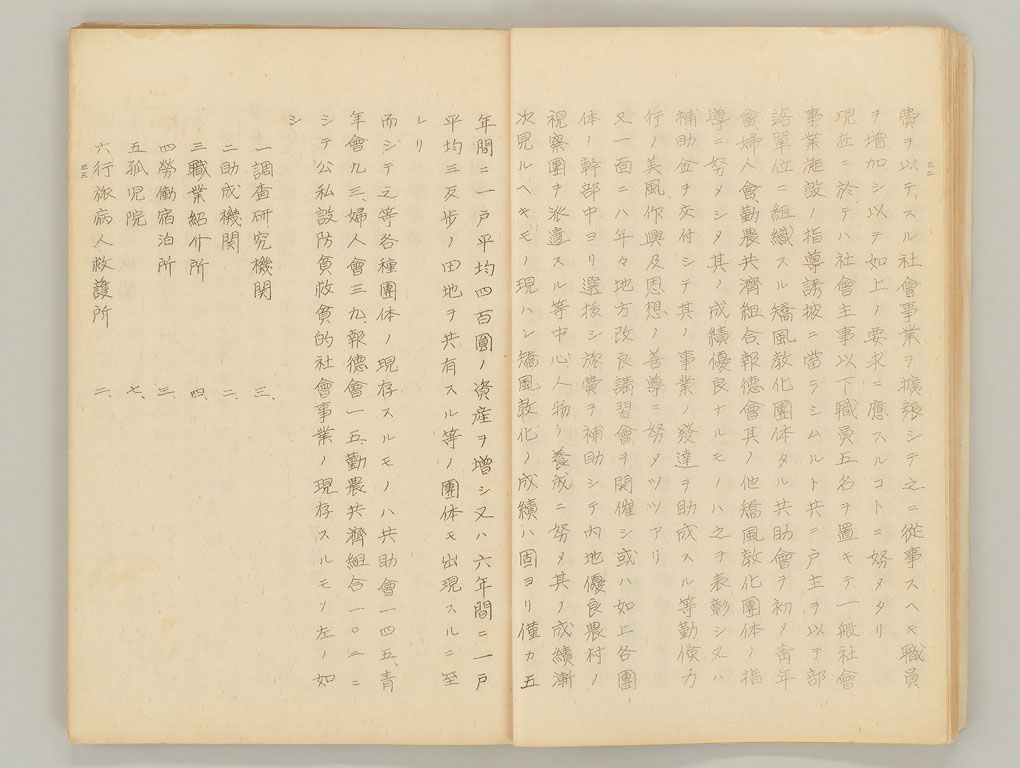 費ヲ以テスル社會事業ヲ擴張シテ之ニ從事スヘキ職員
ヲ增加シ以テ如上ノ要求ニ應スルコトニ努メタリ
現在ニ於テハ社會主事以下職員五名ヲ置キテ一般社會
事業施設ノ指導誘掖ニ當ラシムルト共ニ戸主ヲ以テ部
落單位ニ組織スル矯風敎化團体タル共助會ヲ初メ靑年
會婦人會勤農共濟組合、報德會其ノ他矯風敎化團体ノ指
導ニ努メシメ其ノ成績優良ナルモノハ之ヲ表彰シ又ハ
補助金ヲ交付シテ其ノ事業ノ發達ヲ助成スル等勤儉力
行ノ美風作興及思想ノ善導ニ努メツツアリ
又一面ニハ年々地方改良講習會ヲ開催シ或ハ如上各團
体ノ幹部中ヨリ選拔シ旅費ヲ補助シテ內地優良農村ノ
視察團ヲ派遣スル等中心人物ノ養成ニ努メ其ノ成績漸
次見ルヘキモノ現ハレ矯風敎化ノ成績ハ固ヨリ僅カ五
年間ニ一戸平均四百圓ノ資産ヲ增シ又ハ六年間ニ一戸
平均三反步ノ田地ヲ共有スル等ノ團体モ出現スルニ至
レリ
而シテ之等各種團体ノ現存スルモノハ共助會一四五、靑
年會九三、婦人會三九、報德會一五、勤農共濟組合一〇二ニ
シテ公私設防貧救貧的社會事業ノ現存スルモノ左ノ如
シ
一調查硏究機関 三、
二助成機関 二、
三職業紹介所 四、
四勞働宿泊所 三、
五孤児院 七、
六行旅病人救護所 二、